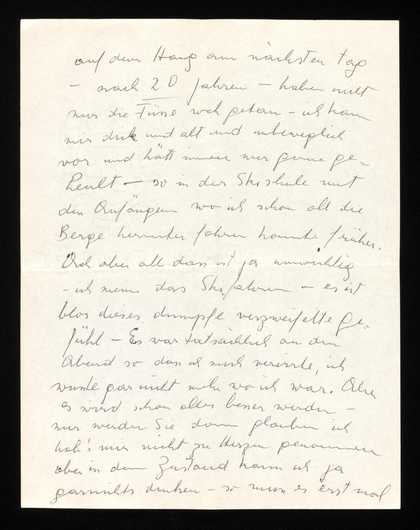 auf dem Hang am nächsten Tag
– nach 20 Jahren – haben nicht
nur die Füsse weh getan – ich kam
mir dick und alt und unbeweglich
vor und hätt immer nur gerne ge-
heult – so in der Skischule mit
den Anfängern wo ich schon all die
Berge herunter fahren konnte früher.
Und aber all dass ist ja unwichtig
– ich mein das Skifahren – es ist
blos dieses dumpfe verzweifelte Ge-
fühl – Es war tatsächlich an dem
Abend so dass ich mich verirrte, ich
wusste gar nicht mehr wo ich war. Aber
es wird schon alles besser werden –
nur werden Sie dann glauben ich
hab's mir nicht zu Herzen genommen
aber in dem Zustand kann ich ja
garnichts denken – so muss es erst mal